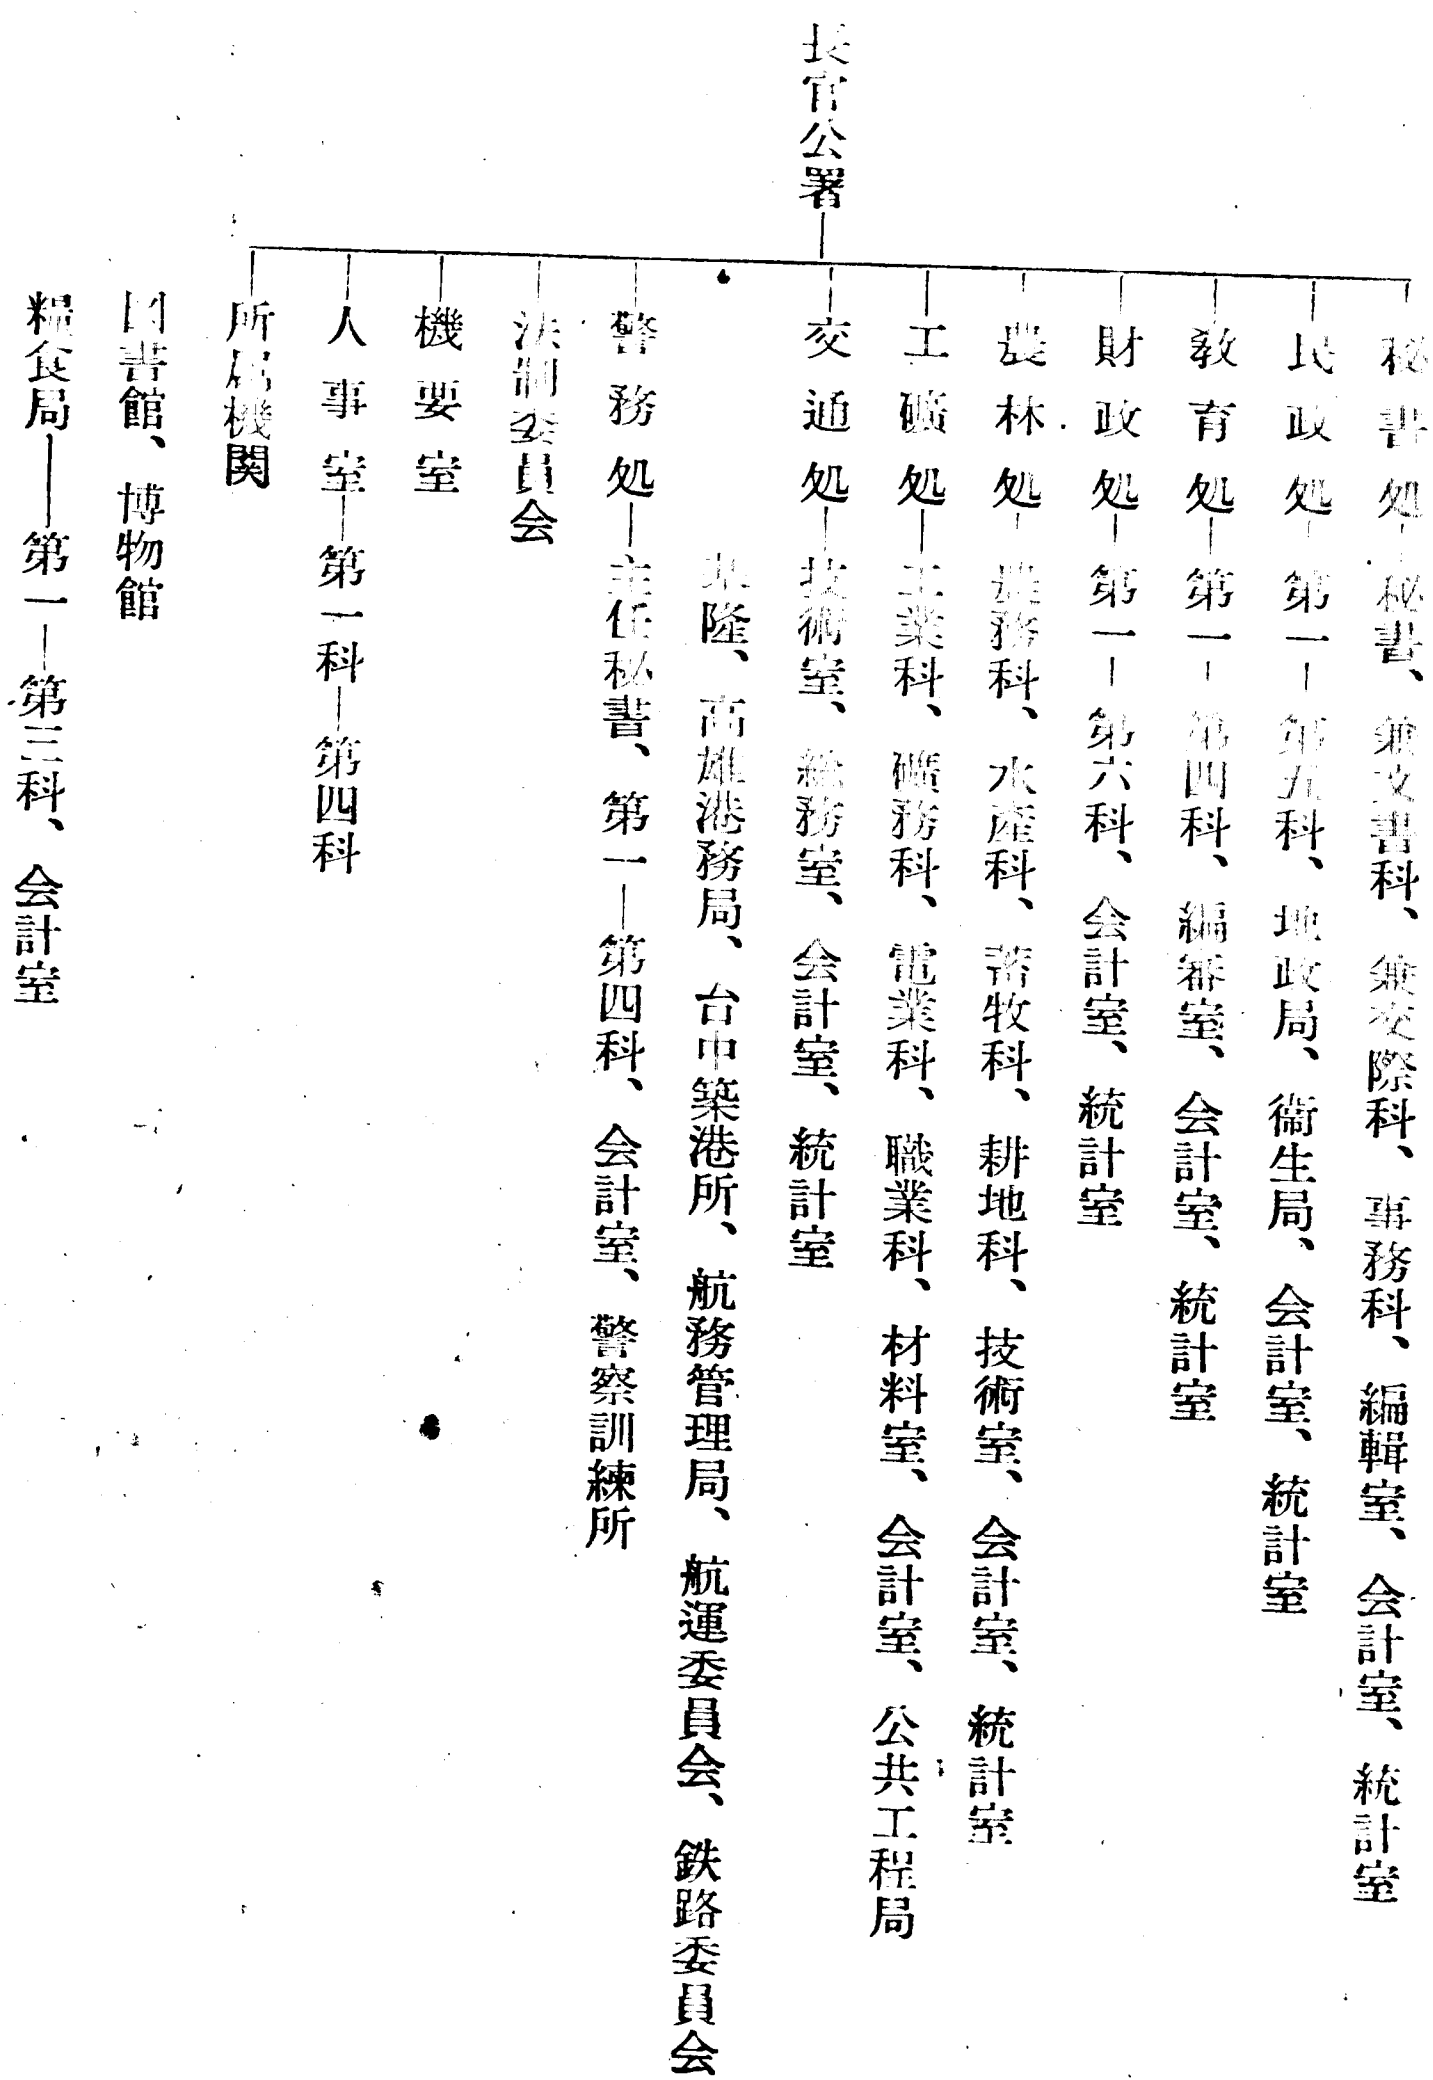 長官公署
秘書処―秘書、兼文書科、兼交際科、事務科、編輯室、会計室、統計室
民政処―第一―第五科、地政局、衞生局、会計室、統計室
教育処―第一―第四科、編審室、会計室、統計室
財政処―第一―第六科、会計室、統計室
農林処―農務科、水産科、蓄牧科、耕地科、技術室、会計室、統計室
工礦処―工業科、礦務科、電業科、職業科、材料室、会計室、公共工程局
交通処―技術室、総務室、会計室、統計室
基隆、高雄港務局、台中築港所、航務管理局、航運委員会、鉄路委員会
警務処―主任秘書、第一―第四科、会計室、警察訓練所
法制委員会
機要室
人事室―第一科―第四科
所属機関
図書館、博物館
糧食局――第一―第三科、会計室